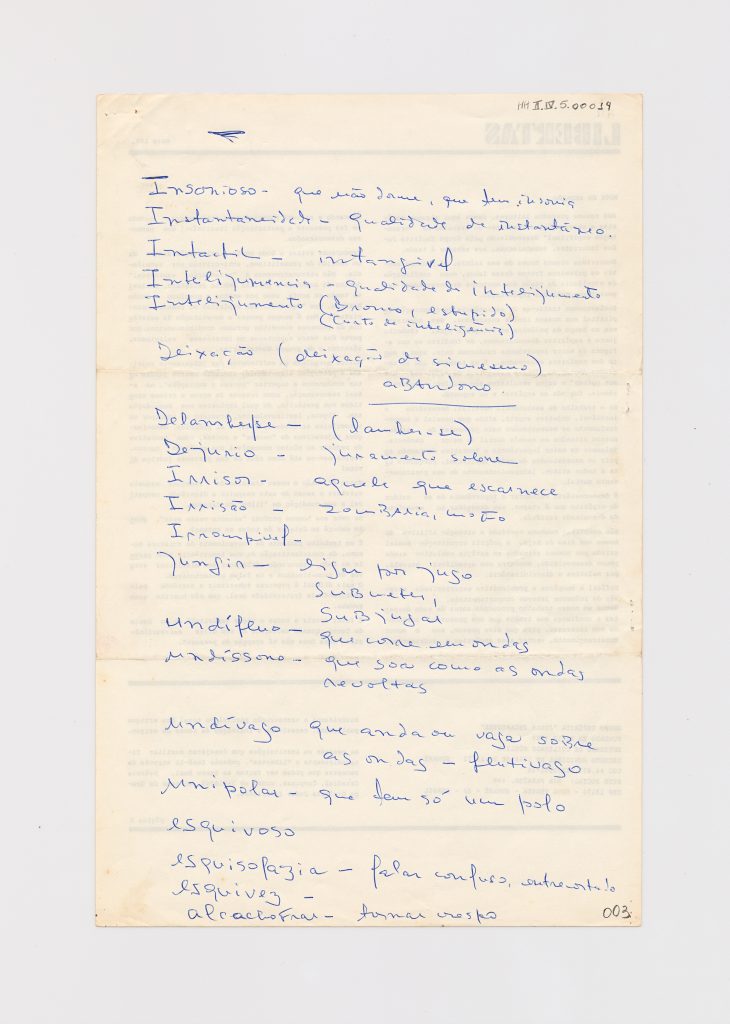 HH II.IV.5.00019
Insonioso - que não dorme, que tem insonia
Instantaneidade - qualidade de instantâneo.
Intactil - intangivel
Intelijumencia - qualidade de intelijumento
Intelijumento (Bronco, estupido)
(Curto de inteligência)
Deixação (deixação de simesmo)
aBANdono
Delamber-se - (lamber-se)
Dejurio - juramento solene
Irrisor - aquele que escarnece
Irrisão - zomBAria, mofo
Irrompivel -
Jungir - ligar por jugo
SuBmeter,
SuBjugar
undífluo - que corre em ondas
undíssono - que soa como as ondas
revoltas
undívago que anda ou vaga soBre
as ondas - flutivago
unipolar - que tem só um polo
esquivoso
esquisofazia - falar confuso, entrecortado
esquivez -
alcachofrar - tornar crespo
003